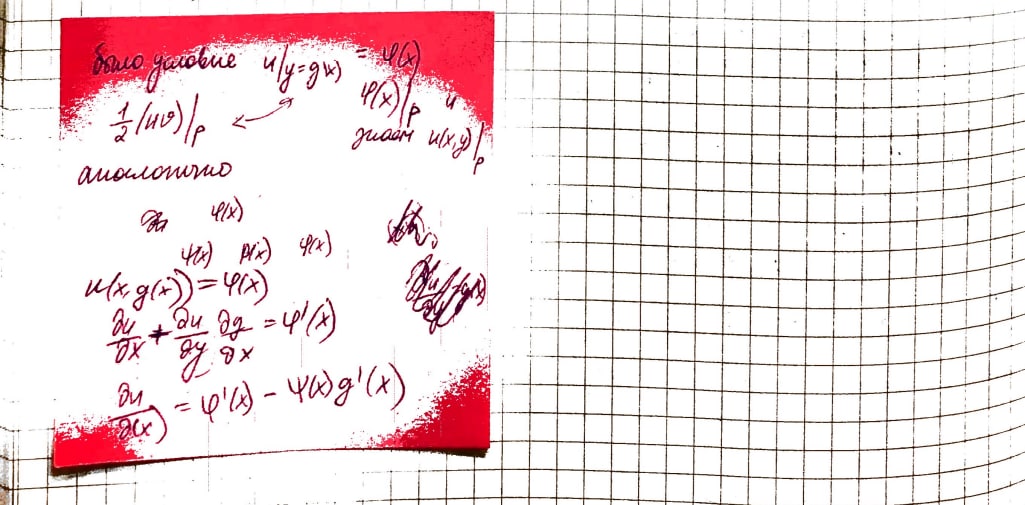 было условие u|y=g(x) = φ(x)
1/2 (uv)|p ↔ φ(x)|p и
знаем u(x,y)|p
аналогично
φ(x)
ψ(x) р(x) φ(x)
u(x, g(x)) = φ(x)
∂u/∂x + ∂u/∂y ∂g/∂x = φ'(x)
∂u/∂(x) = φ'(x) - ψ(x) g'(x)